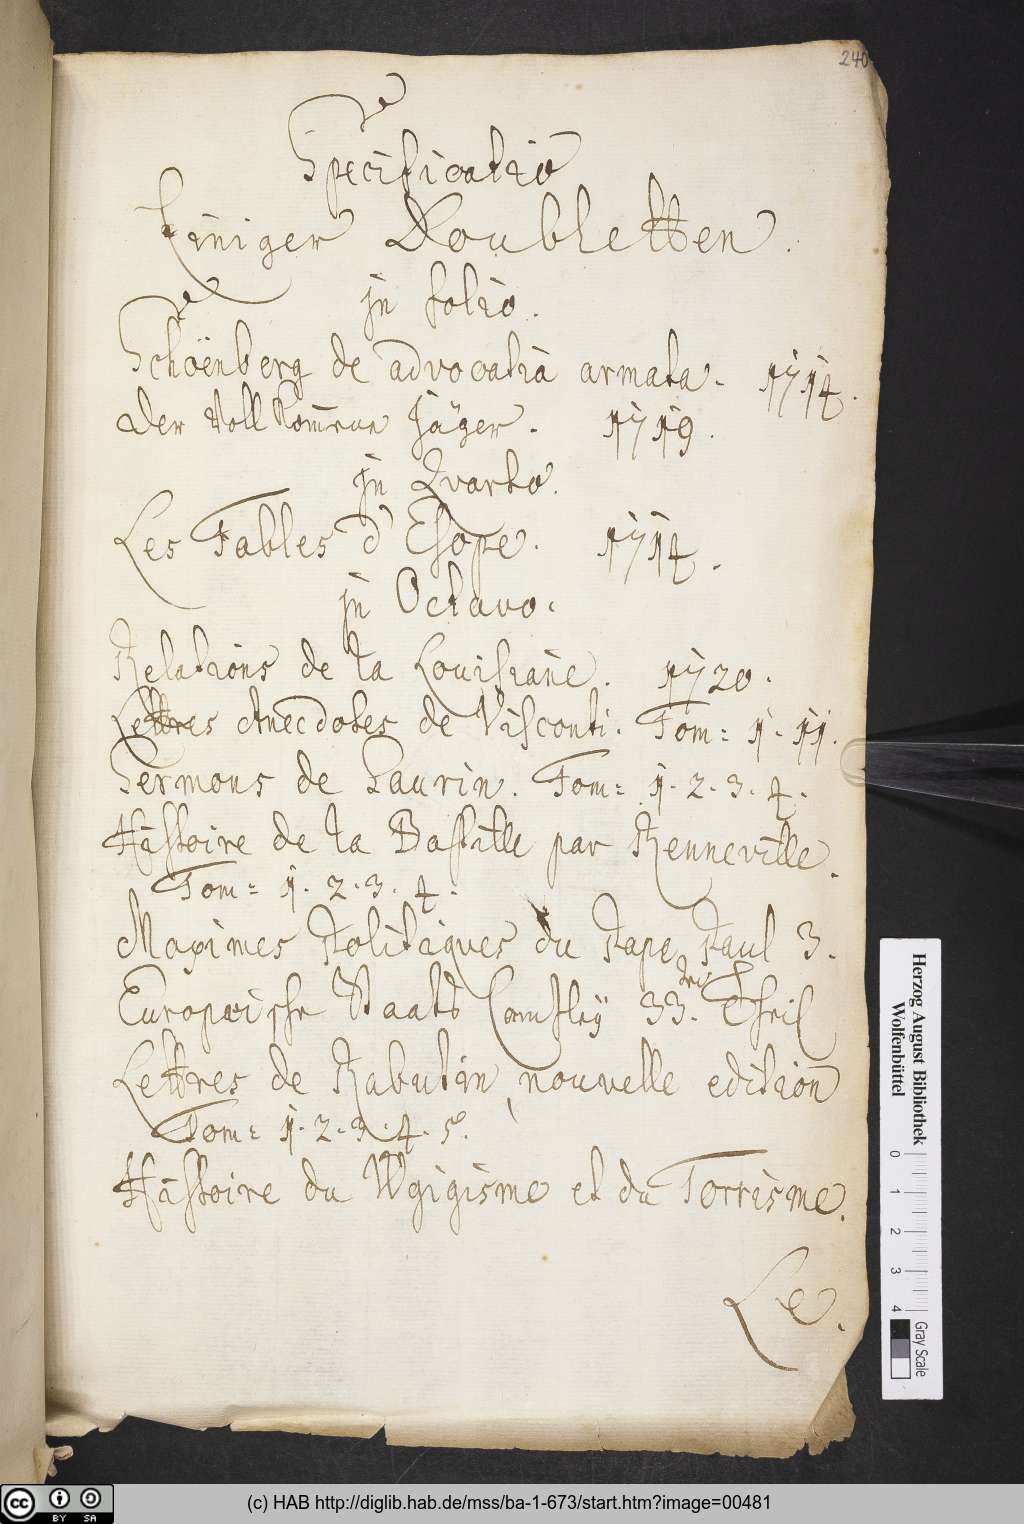 240
Specificatio
Einiger Doubletten.
jn folio.
Schöenberg de advocatia armata. 1714.
Der Vollkom̄ene Jäger. 1719.
jn Qvarto.
Les Fables d'Esope. 1714.
jn Octavo.
Relations de la Louisiane. 1720.
Lettres Anecdotes de Visconti. Tom: 1. 11.
Sermons de Saurin. Tom: 1. 2. 3. 4.
Histoire de la Bastille par Renneville.
Tom: 1. 2. 3. 4.
Maximes Politiques du Pape Paul 3.
Europæische Staats Cantzley 33. Theil
Lettres de Rabutin, nouvelle edition
Tom: 1. 2. 3. 4. 5.
Histoire du Wgigisme et du Torrisme.
Le.
Herzog August Bibliothek
Wolfenbüttel
0 1 2 3 4
Gray Scale
cc BY SA
(c) HAB http://diglib.hab.de/mss/ba-1-673/start.htm?image=00481